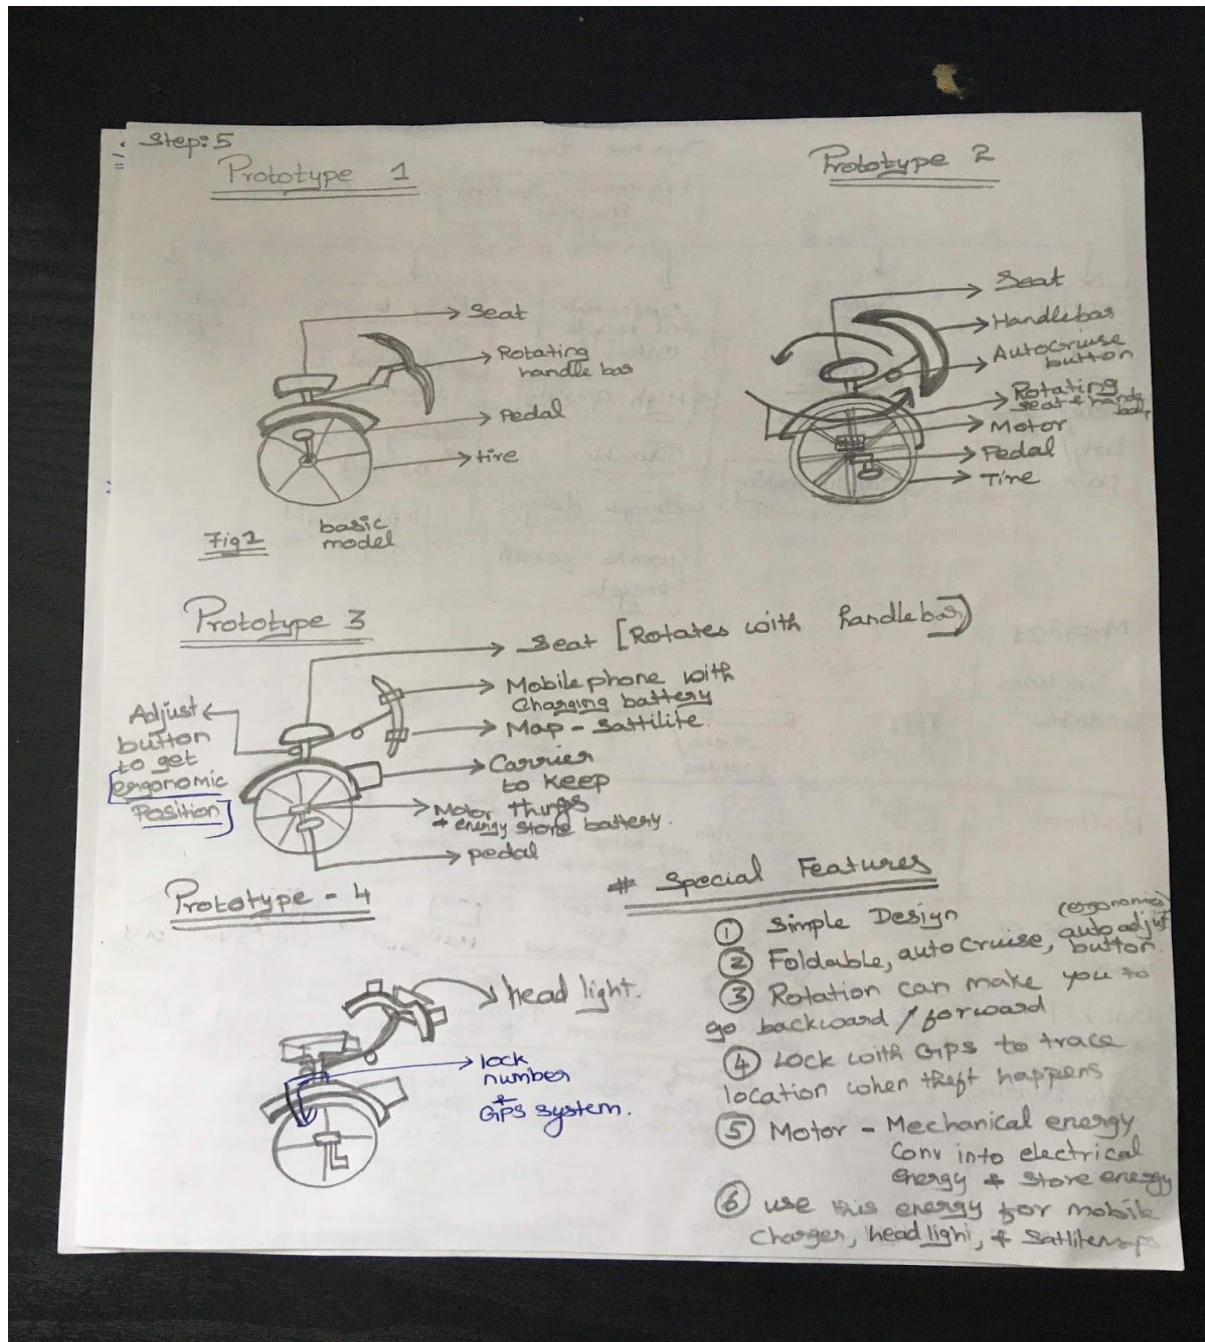 Step: 5
Prototype 1
Seat
Rotating
handle bar
Pedal
tire
Fig 1
basic
model
Prototype 2
Seat
Handlebar
Autocruise
button
Rotating
Seat & handle
bar
Motor
Pedal
Tire
Prototype 3
Seat [Rotates with handlebar]
Mobile phone with
Charging battery
Map - Sattilite
Carrier
to keep
things
Motor
+ energy store battery.
pedal
Adjust
button
to get
ergonomic
Position
Prototype - 4
head light.
lock
number
+
GPS system.
# Special Features
① Simple Design
② Foldable, auto cruise, (ergonomic) auto adjust
button.
③ Rotation can make you to
go backward / forward
④ Lock with GPS to trace
location when theft happens
⑤ Motor - Mechanical energy
Conv into electrical
energy & store energy
⑥ use this energy for mobile
Charger, head light, &